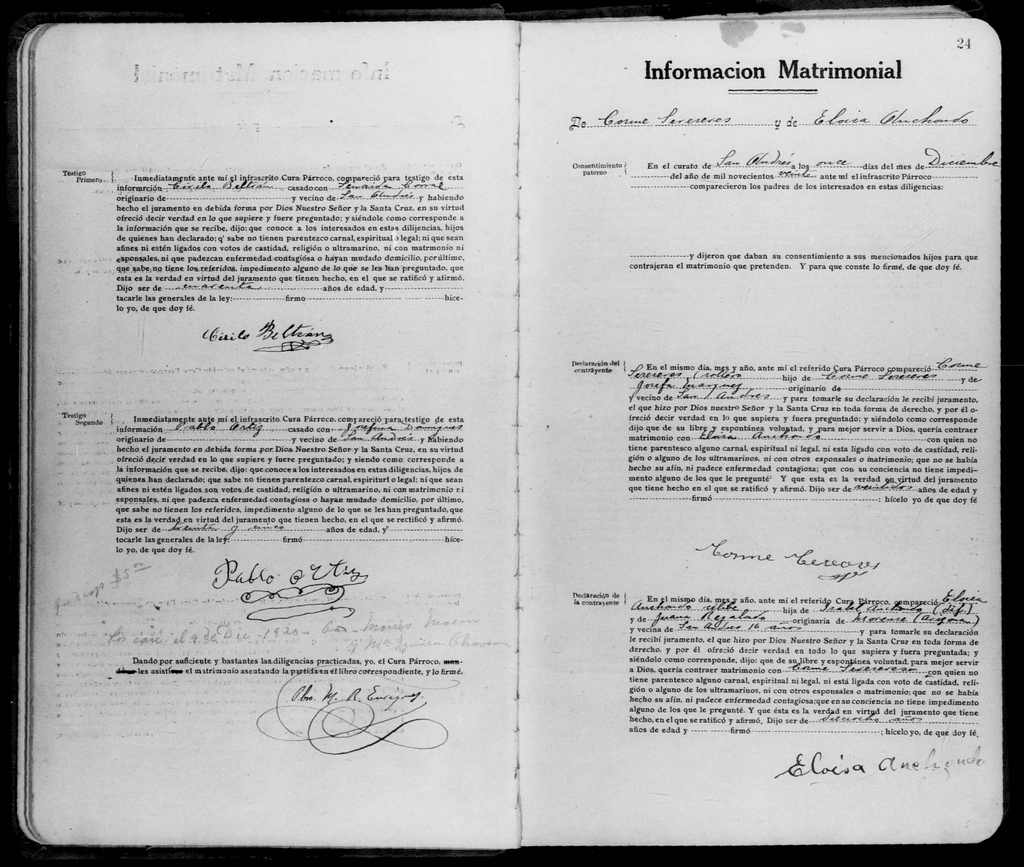 Testigo
Primero
Inmediatamente ante mí el infrascrito Cura Párroco, compareció para testigo de esta
información Cirilo Beltrán casado con Corral
originario de y vecino de San Andrés y habiendo
hecho el juramento en debida forma por Dios Nuestro Señor y la Santa Cruz, en su virtud
ofreció decir verdad en lo que supiere y fuere preguntado; y siéndole como corresponde a
la información que se recibe, dijo: que conoce a los interesados en estas diligencias, hijos
de quienes han declarado; q' sabe no tienen parentezco carnal, espiritual o legal; ni que sean
afines ni estén ligados con votos de castidad, religión o ultramarino, ni con matrimonio ni
esponsales, ni que padezcan enfermedad contagiosa o hayan mudado domicilio, por último,
que sabe no tiene los referidos, impedimento alguno de lo que se les han preguntado, que
esta es la verdad en virtud del juramento que tienen hecho, en el que se ratificó y afirmó.
Dijo ser de cuarenta años de edad, y
tacarle las generales de la ley: firmo híce-
lo yo, de que doy fé.
Cirilo Beltrán
Testigo
Segundo
Inmediatamente ante mí el infrascrito Cura Párroco, compareció para testigo de esta
información Pablo Ortiz casado con Josefina Domínguez
originario de y vecino de San Andrés y habiendo
hecho el juramento en debida forma por Dios Nuestro Señor y la Santa Cruz, en su virtud
ofreció decir verdad en lo que supiere y fuere preguntado; y siéndole como corresponde a
la información que se recibe, dijo: que conoce a los interesados en estas diligencias, hijos de
quienes han declarado; que sabe no tienen parentezco carnal, espiriturl o legal; ni que sean
afines ni estén ligados son votos de castidad, religión o ultramarino, ni con matrimonio ni
esponsales, ni que padezca enfermedad contagiosa o hayan mudado domicilio, por último,
que sabe no tienen los referidos, impedimento alguno de lo que se les han preguntado, que
esta es la verdad en virtud del juramento que tienen hecho, en el que se rectificó y afirmó.
Dijo ser de y cinco años de edad, y
tocarle las generales de la ley: firmó híce-
lo yo, de que doy fé.
Pablo Ortiz
$5.00
Los casé el 9 de Dic. 1920
Dando por suficiente y bastantes las diligencias practicadas, yo, el Cura Párroco,
les el matrimonio asentando la partida en el libro correspondiente, y lo firmé.
Pbro. M. R. Enríquez
24
Informacion Matrimonial
De Cosme y de Eloisa Anchondo
Consentimiento
paterno
En el curato de San Andrés a los once días del mes de Diciembre
del año de mil novecientos veinte ante mí el infrascrito Párroco
comparecieron los padres de los interesados en estas diligencias:
y dijeron que daban su consentimiento a sus mencionados hijos para que
contrajeran el matrimonio que pretenden. Y para que conste lo firmé, de que doy fé.
Declaración del
contrayente
En el mismo día, mes y año, ante mí el referido Cura Párroco compareció Cosme
hijo de Cosme y de
Josefa Marquez originario de
y vecino de San Andrés y para tomarle su declaración le recibí juramento,
el que hizo por Dios nuestro Señor y la Santa Cruz en toda forma de derecho, y por él o-
freció decir verdad en lo que supiera y fuera preguntado; y siéndolo como corresponde
dijo que de su libre y espontánea voluntad, y para mejor servir a Dios, quería contraer
matrimonio con Eloisa Anchondo con quien no
tiene parentesco alguno carnal, espiritual ni legal, ni esta ligado con voto de castidad, reli-
gión o alguno de los ultramarinos, ni con otros esponsales o matrimonio; que no se había
hecho su afin, ni padece enfermedad contagiosa; que con su conciencia no tiene impedi-
mento alguno de los que le pregunté Y que esta es la verdad en virtud del juramento que
tiene hecho en el que se ratificó y afirmó. Dijo ser de años de edad y
firmó : hícelo yo de que doy fé
Cosme
Declaración de
la contrayente
En el mismo día, mes y año, ante mí el referido Cura Párroco, compareció Eloisa
Anchondo célibe hija de Isabel Anchondo (df.)
y de Juana Regalado originaria de Morense (Arizona)
y vecina de San Andrés 16 años y para tomarle su declaración
le recibí juramento, el que hizo por Dios Nuestro Señor y la Santa Cruz en toda forma de
derecho, y por él ofreció decir verdad en todo lo que supiera y fuera preguntada; y
siéndolo como corresponde, dijo: que de su libre y espontánea voluntad, para mejor servir
a Dios, quería contraer matrimonio con Cosme con quien no
tiene parentesco alguno carnal, espiritual ni legal, ni está ligada con voto de castidad, reli-
gión o alguno de los ultramarinos, ni con otros esponsales o matrimonio; que no se había
hecho su afín, ni padece enfermedad contagiosa; que en su conciencia no tiene impedimento
alguno de los que le pregunté. Y que ésta es la verdad en virtud del juramento que tiene
hecho, en el que se ratificó y afirmó, Dijo ser de dieciocho años
años de edad y firmó ; hícelo yo, de que doy fé.
Eloisa Anchondo